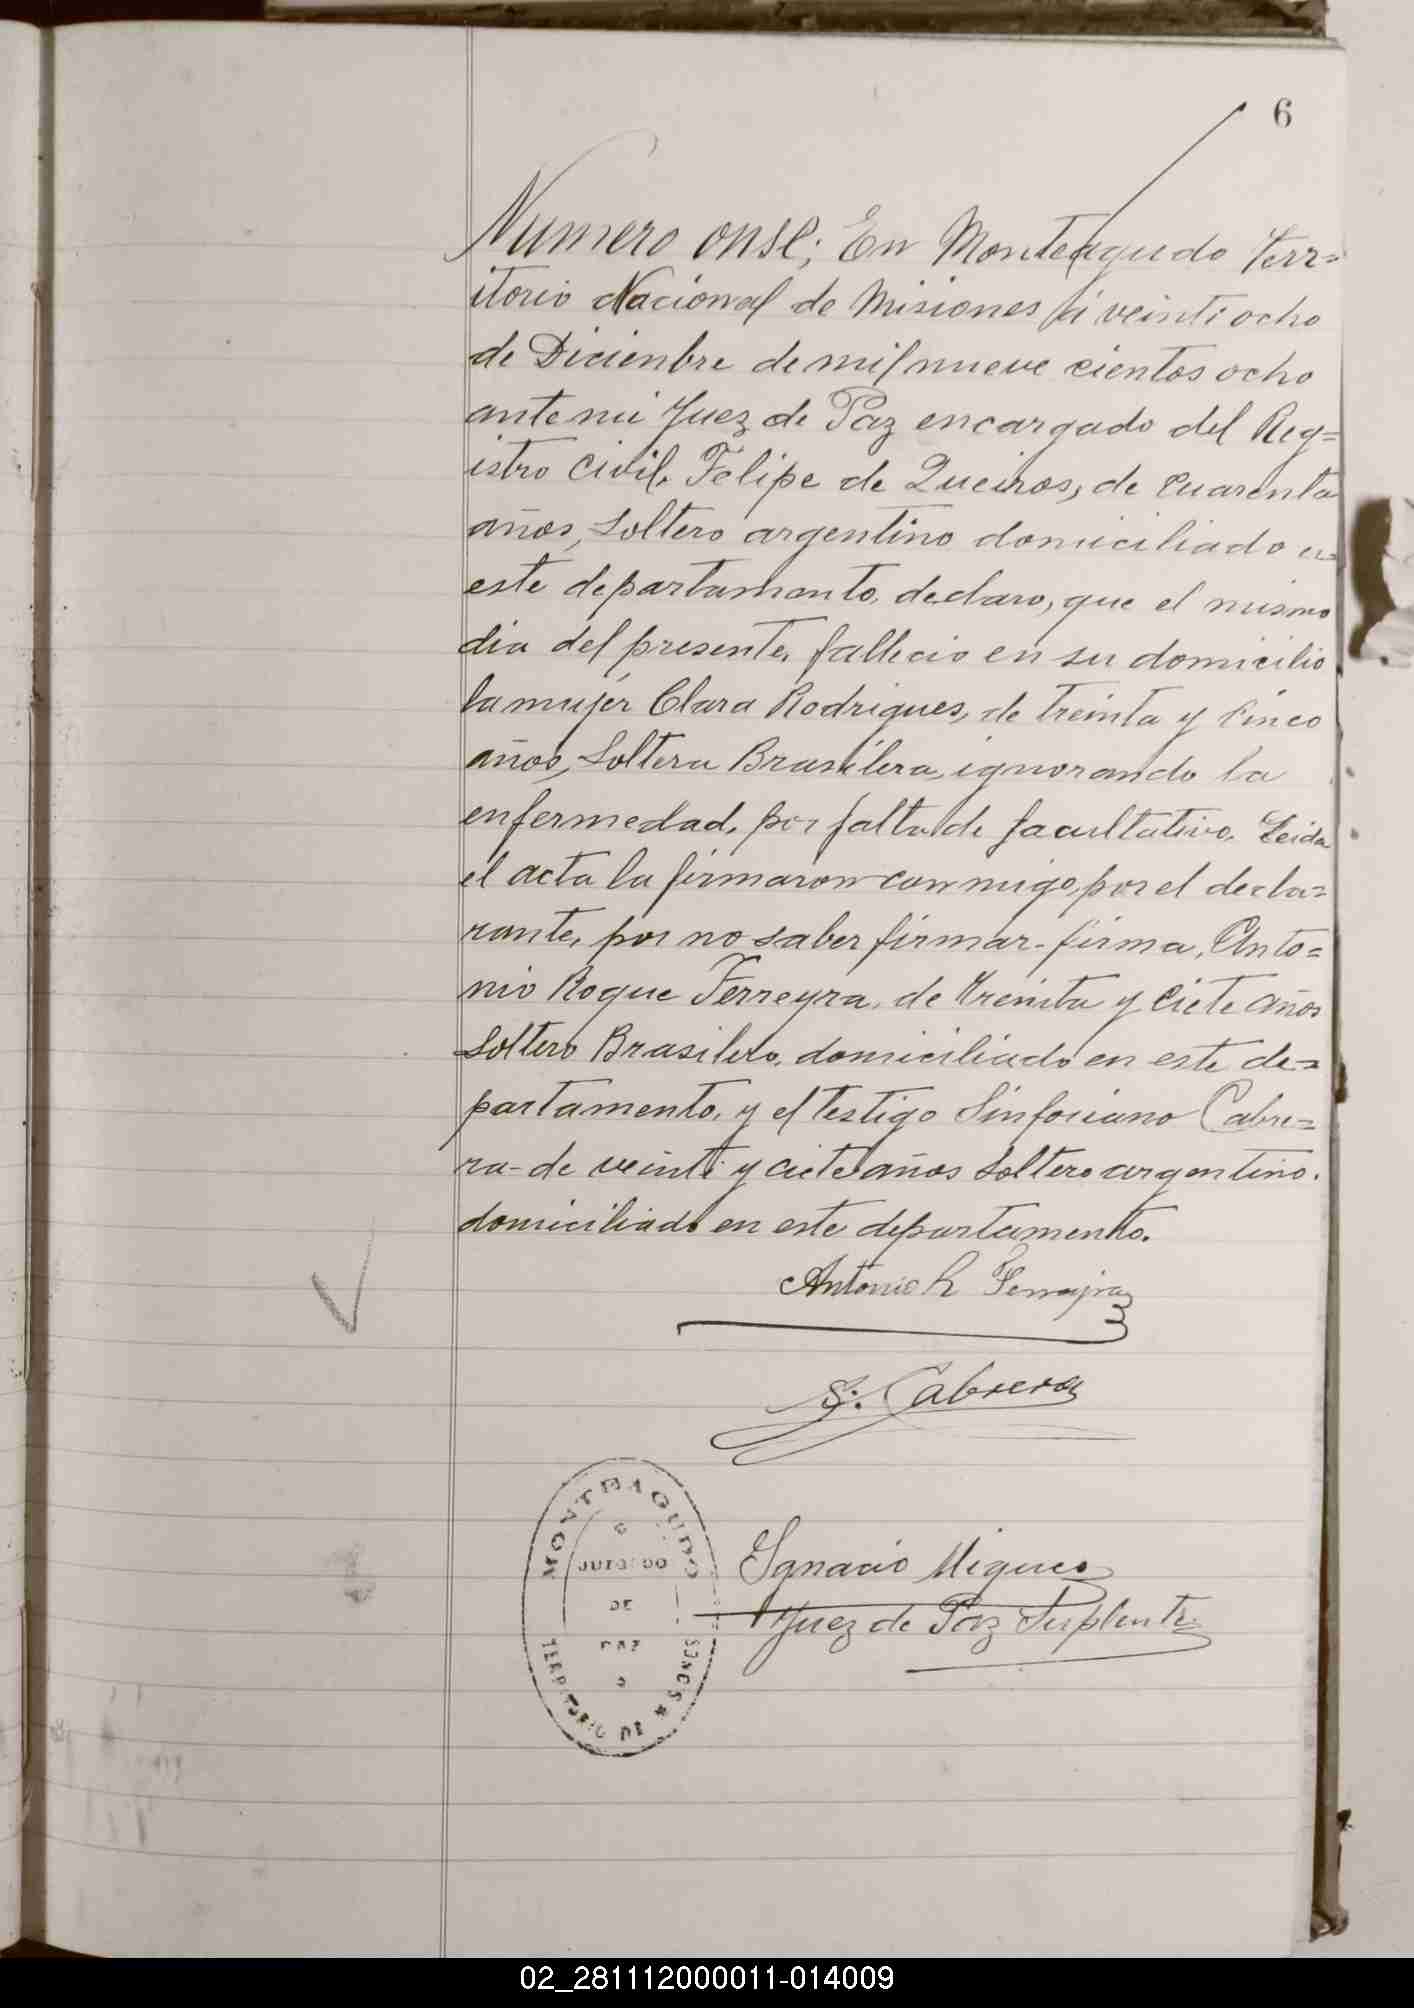 6
Numero onse; En Monteagudo Terr=
itorio Nacional de Misiones á veinti ocho
de Diciembre de mil nueve cientos ocho
ante mi Juez de Paz encargado del Reg=
istro Civil, Felipe de Queiros, de cuarenta
años, Soltero argentino domiciliado en
este departamento, declaro, que el mismo
dia del presente, fallecio en su domicilio
la mujer Clara Rodrigues, de treinta y cinco
años, Soltera Brasilera, ignorando la
enfermedad, por falta de facultativo. Leida
el acta la firmaron conmigo, por el decla=
rante, por no saber firmar - firma, Anto=
nio Roque Ferreyra, de treinta y ciete años
Soltero Brasilero, domiciliado en este de=
partamento, y el testigo Sinforiano Cabre=
ra - de veinti y ciete años Soltero argentino.
domiciliado en este departamento.
Antonio R Ferreyra
S. Cabrera
MONTEAGUDO
JUZGADO
DE
PAZ
TERRITORIO
Ignacio
Juez de Paz Suplente
02_281112000011-014009